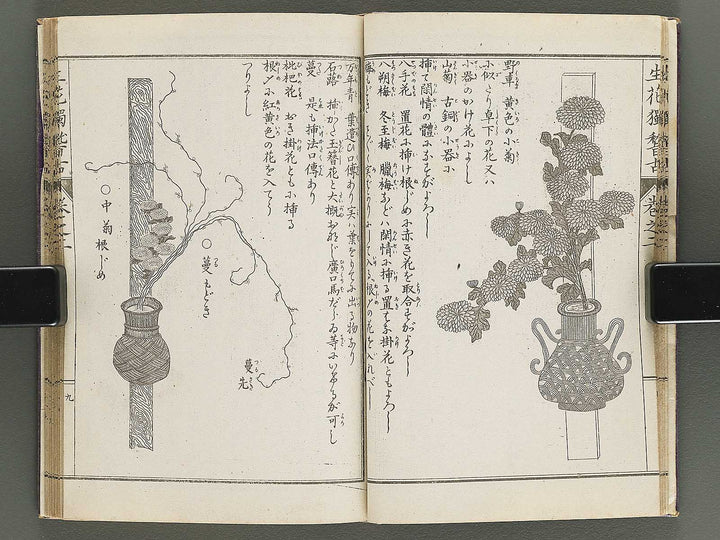 生花獨稽古 巻之二
野車 黄色の小菊
小似とり卓下の花又ハ
小器のかけ花によし
山菊 古銅の小器に
挿て閑情の體にふすがよろし
八手花 置花に挿け根じめに赤き花を取合すがよろし
八朔梅 冬至梅 臘梅などハ閑情に挿る置ても掛花ともよろし
根〆の花を入れべし
万年青 葉遣ひ口傳あり実ハ葉をりて小出る物なり
石蕗 挿かた玉簪花と大概おなじ廣口馬だらゐ等にいけるが可し
蔓 是も挿法口傳あり
枇杷花 おき掛花ともに挿る
根〆に紅黄色の花を入てう
つりよし
○蔓もどき
蔓先
○中菊根じめ
九